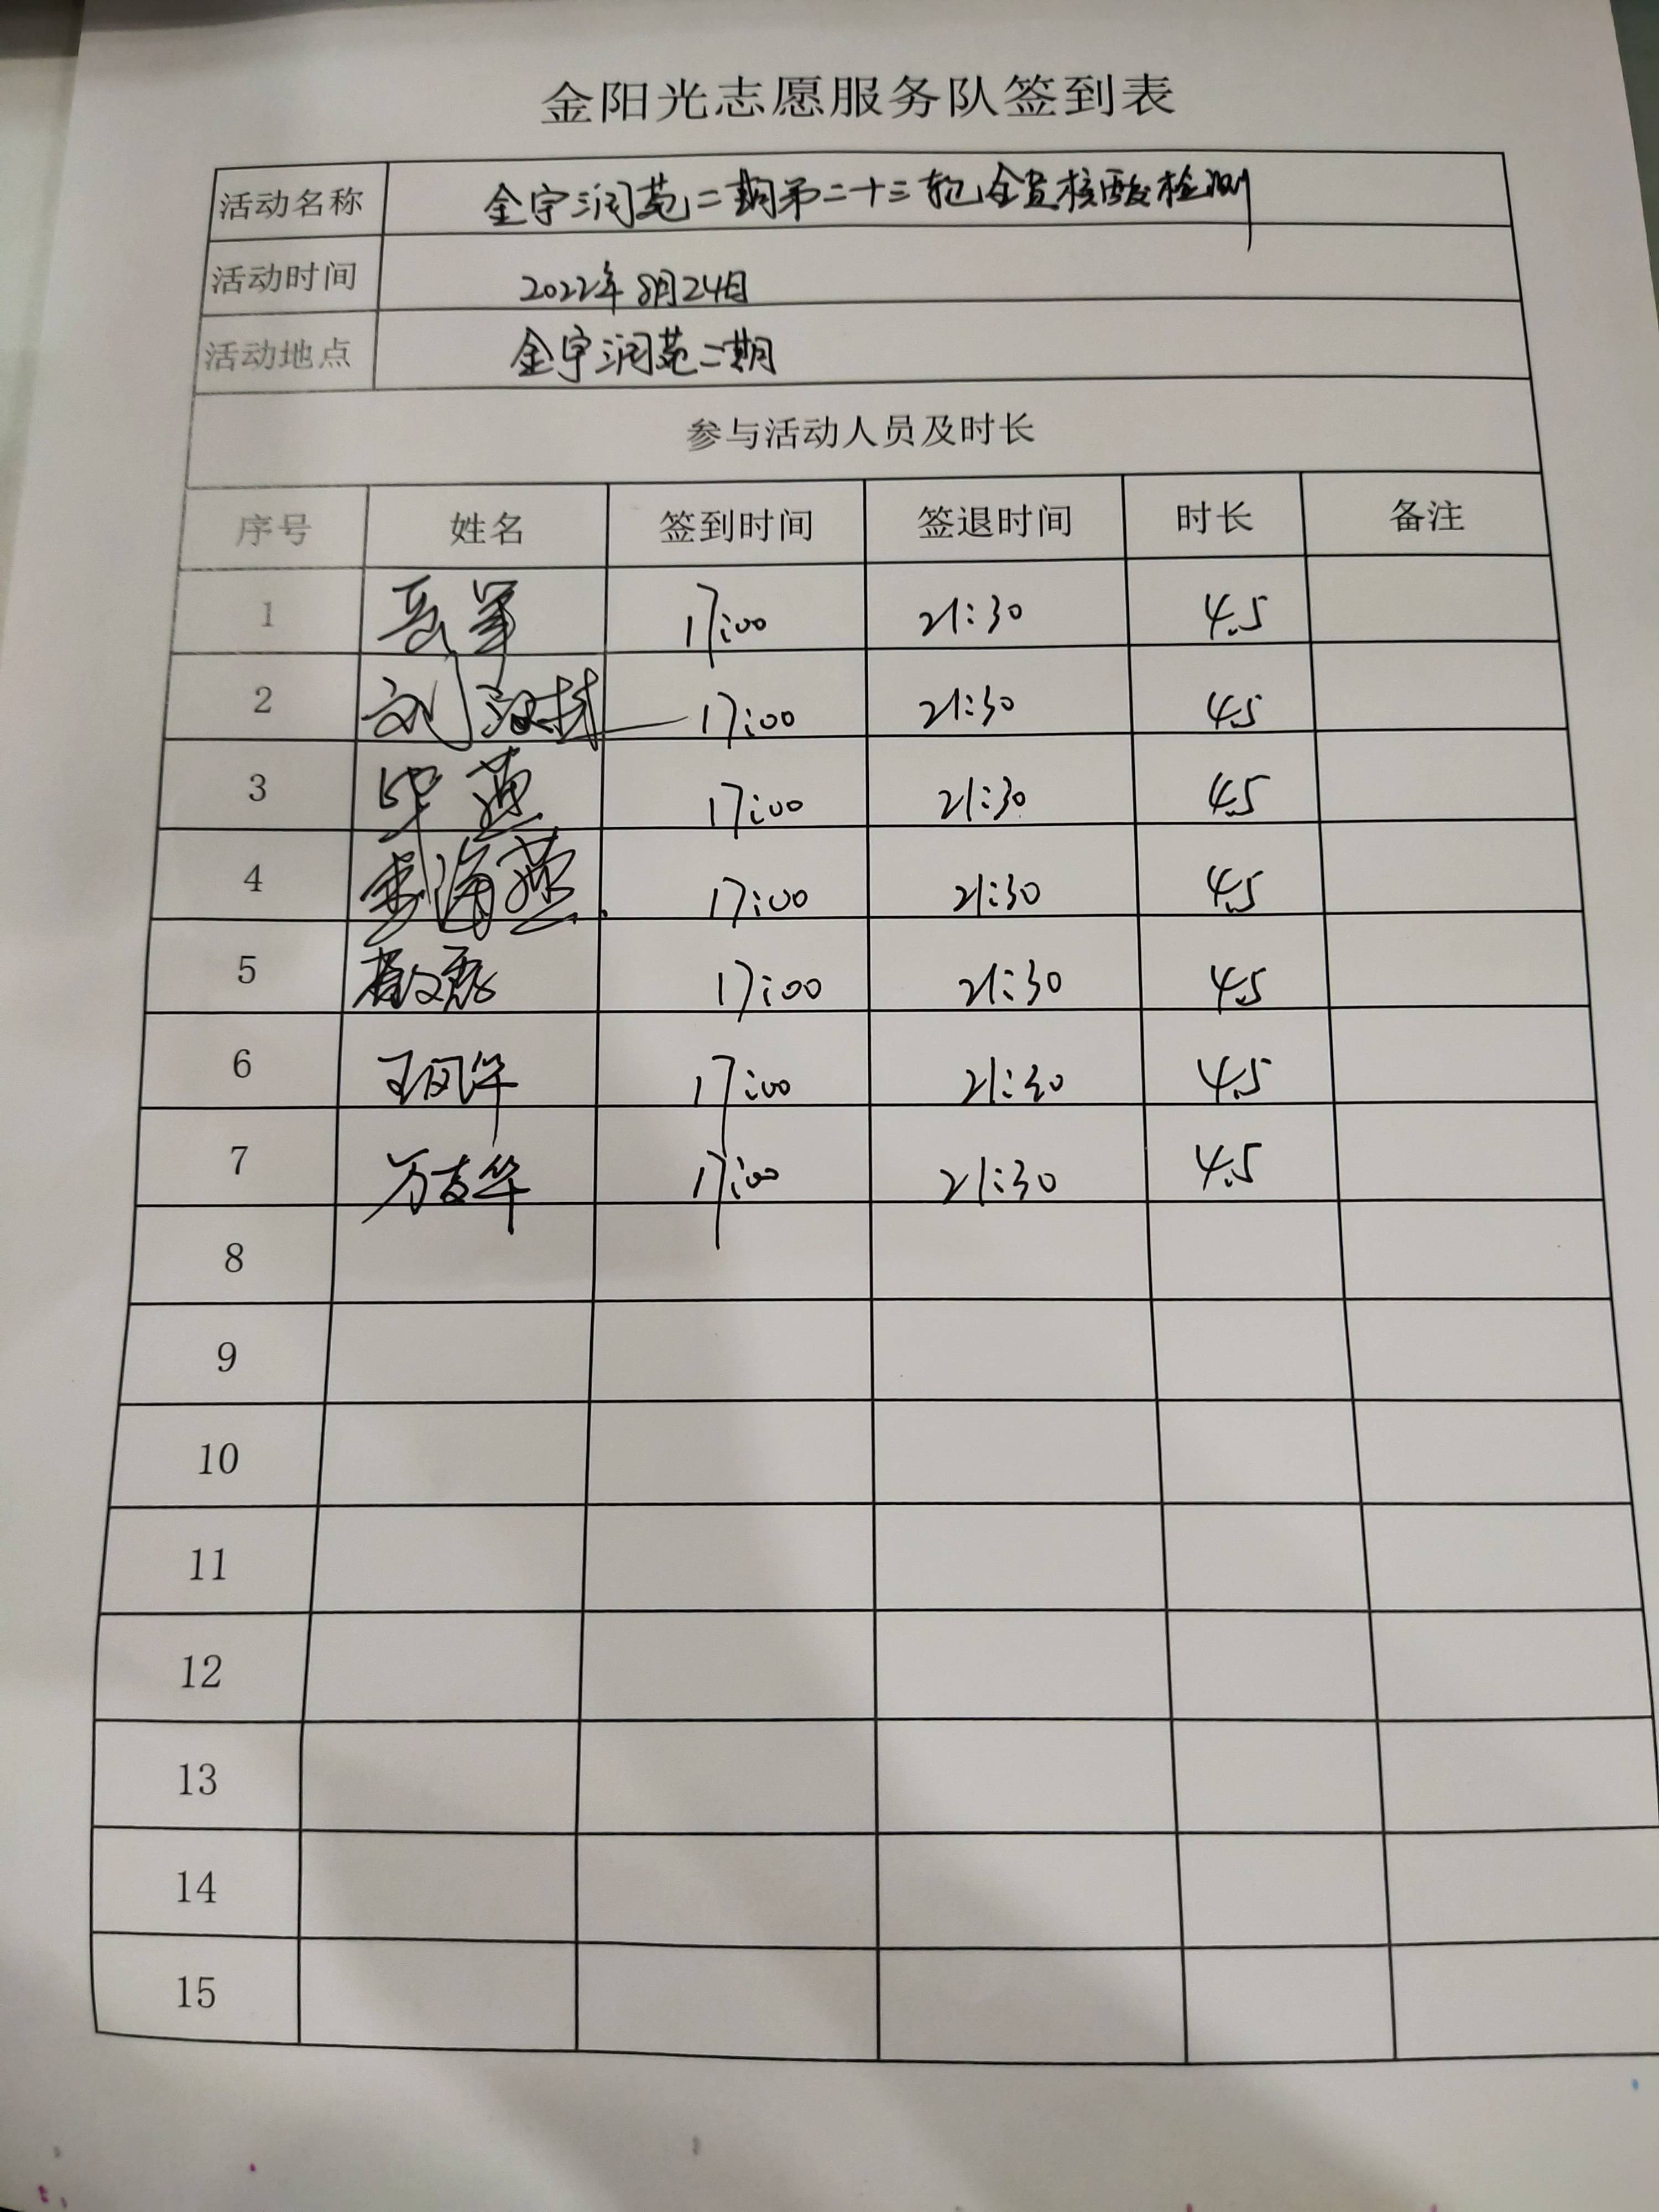 金阳光志愿服务队签到表
活动名称 金宇润苑二期第二十三轮全员核酸检测
活动时间 2022年8月24日
活动地点 金宇润苑二期
参与活动人员及时长
序号 姓名 签到时间 签退时间 时长 备注
1 17:00 21:30 4.5
2 刘 17:00 21:30 4.5
3 毕燕 17:00 21:30 4.5
4 李海燕 17:00 21:30 4.5
5 17:00 21:30 4.5
6 王凤华 17:00 21:30 4.5
7 万吉华 17:00 21:30 4.5
8
9
10
11
12
13
14
15